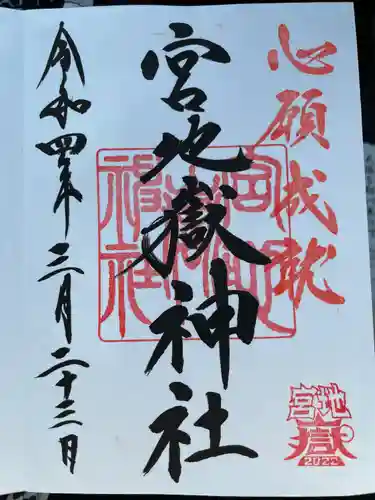 心願成就
宮地嶽神社
令和四年三月二十三日
宮地嶽神社
宮地
嶽
2022